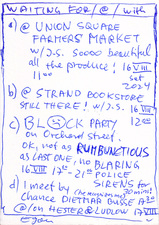 WAITING FOR/@/with
a) @ UNION SQUARE
FARMERS MARKET
w/J.S. SOOOO beautiful
all the produce! 16 VIII
11:00 Sat 2024
b) @ STRAND BOOKSTORE
STILL THERE! w/J.S. 16 VIII
12:00
c) BLOCK PARTY
on Orchard street.
ok, not as RUMBUNCTIOUS
as LAST ONE, no BLARING
16 VIII 17:00-21:00 POLICE
SIRENS for
d) I meet by
CHANCE DIETMAR BUSSE 17:30
@/on HESTER@LUDLOW 17 VIII